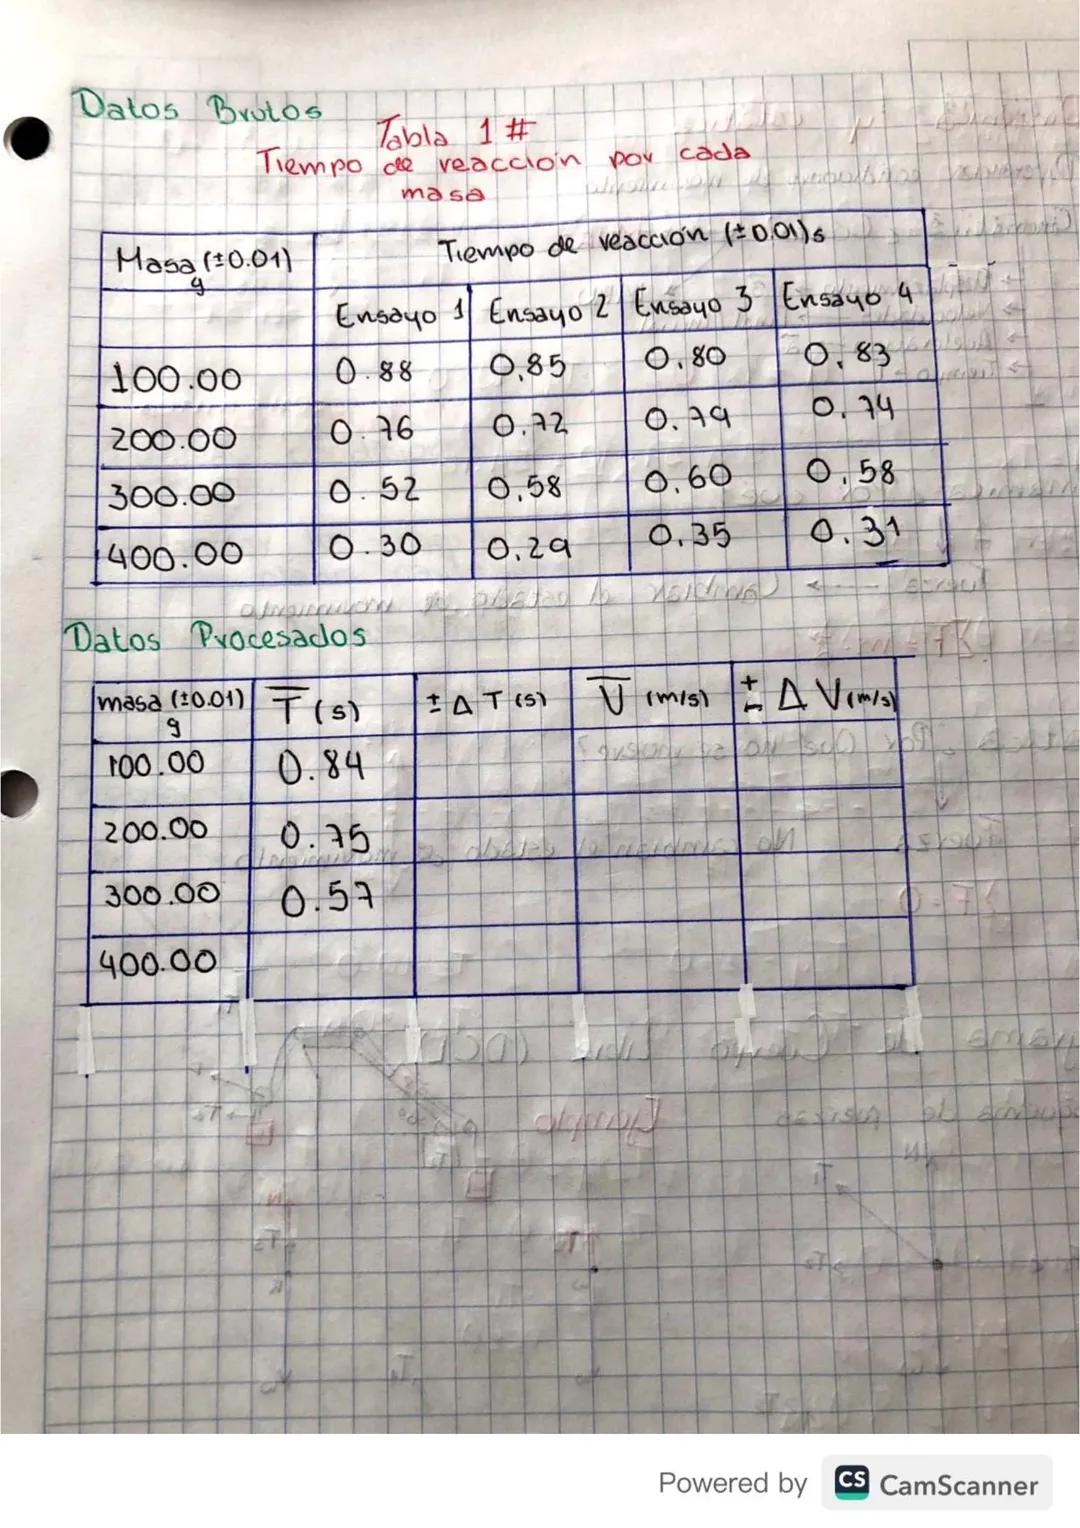 Datos Brutos
Tabla 1 #
Tiempo de reacción por cada
masa
Masa (±0.01) g Tiempo de reacción (±0.01)s
Ensayo 1 Ensayo 2 Ensayo 3 Ensayo 4
100.00 0.88 0.85 0.80 0.83
200.00 0.76 0.72 0.79 0.74
300.00 0.52 0.58 0.60 0.58
400.00 0.30 0.29 0.35 0.31
Datos Procesados
masa (±0.01) g T̅ (s) ± Δ T (s) V̅ (m/s) ± Δ V (m/s)
100.00 0.84
200.00 0.75
300.00 0.57
400.00
Powered by CS CamScanner